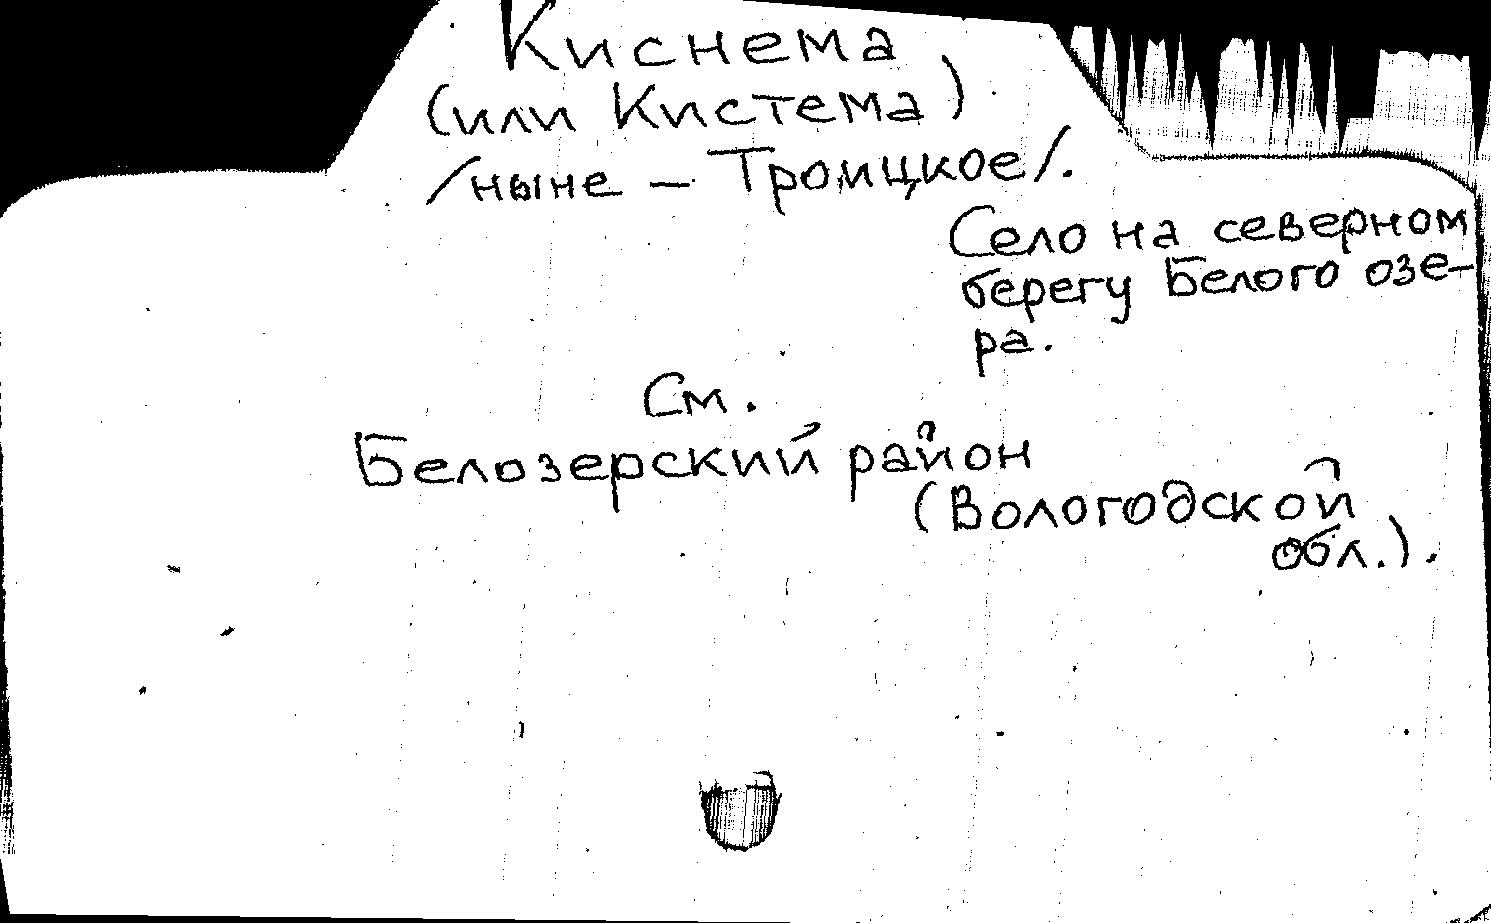 Киснема
(или Кистема)
/ныне – Троицкое/.
Село на северном
берегу Белого озе-
ра.
См.
Белозерский район
(Вологодской
обл.).